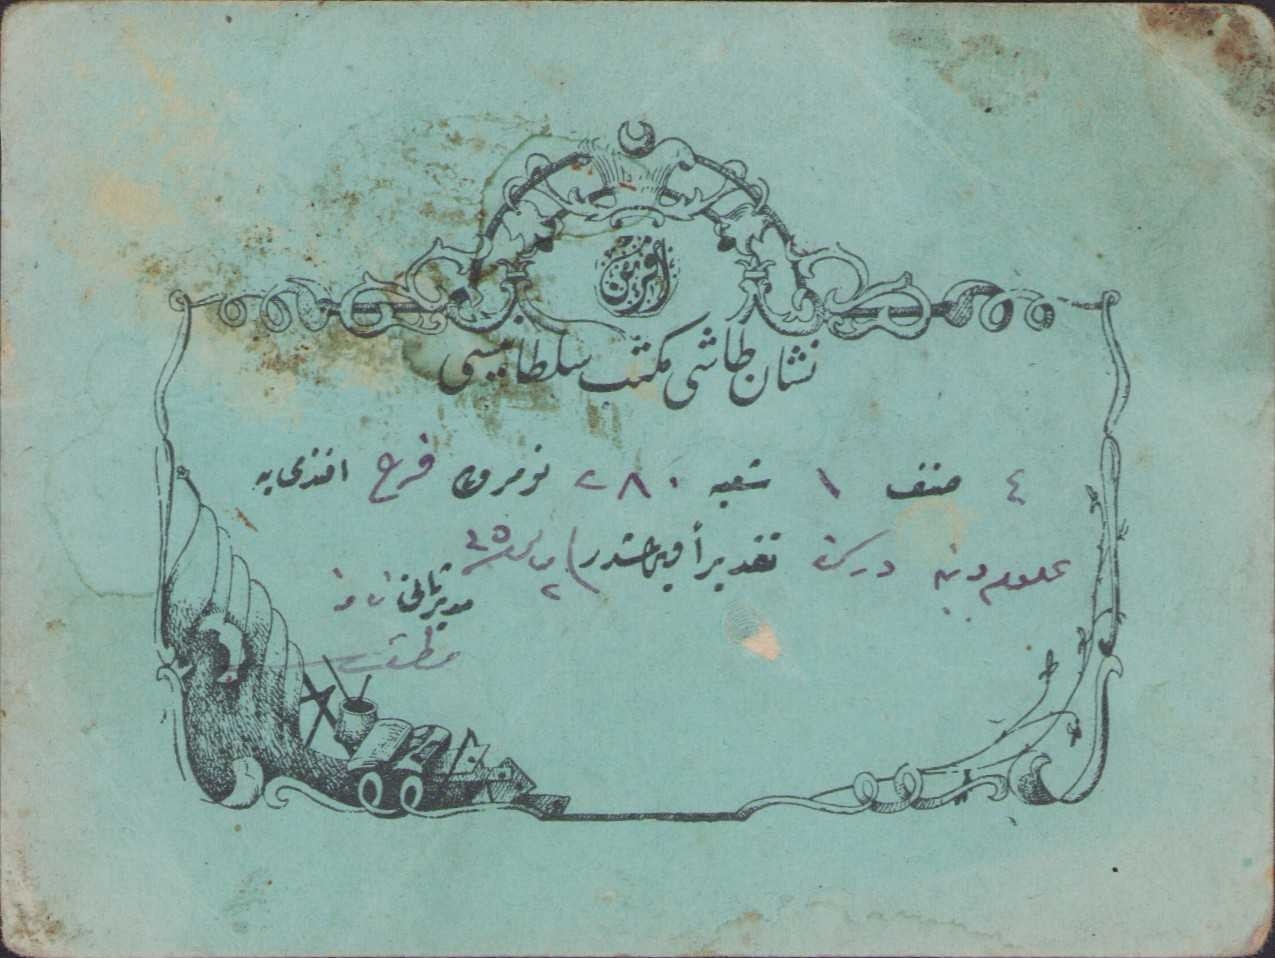 آفرین
نشان طاشی مکتب سلطانیسی
٤ صنف ١ شعبه ٢٨٠ نومرولی فرج افندی یه
علوم دینیه درسندن تقدیراً ویرلمشدر
مدیر ثانی